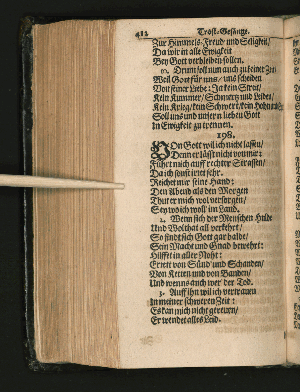 412 Trost-Gesänge.
Zur Himmels-Freud und Seligkeit/
Da wir in alle Ewigkeit
Bey Gott verbleiben sollen.
10. Drum soll nun auch zu keiner Zeit
Weil Gott für uns/ uns scheiden
Von seiner Liebe: Ja kein Streit/
Kein Kummer/ Schmertz und Leiden/
Kein Krieg/ kein Schwert/ kein
Soll uns und unsern lieben Gott
In Ewigkeit zu trennen.
198.
VOn Gott wil ich nicht lassen/
Denn er läst nicht von mir:
Führt mich auff rechter Strassen/
Da ich sonst irret sehr.
Reichet mir seine Hand:
Den Abend als den Morgen
Thut er mich wol versorgen/
Sey wo ich woll im Land.
2. Wenn sich der Menschen Hulde
Und Wolthat all verkehrt/
So findt sich Gott gar balde/
Sein Macht und Gnad bewehrt:
Hilfft in aller Noht:
Errett von Sünd und Schanden/
Von Ketten und von Banden/
Und wenns auch wer der Tod.
3. Auff ihn wil ich vertrauen
In meiner schweren Zeit:
Es kan mich nicht gereuen/
Er wendet alles Leid.